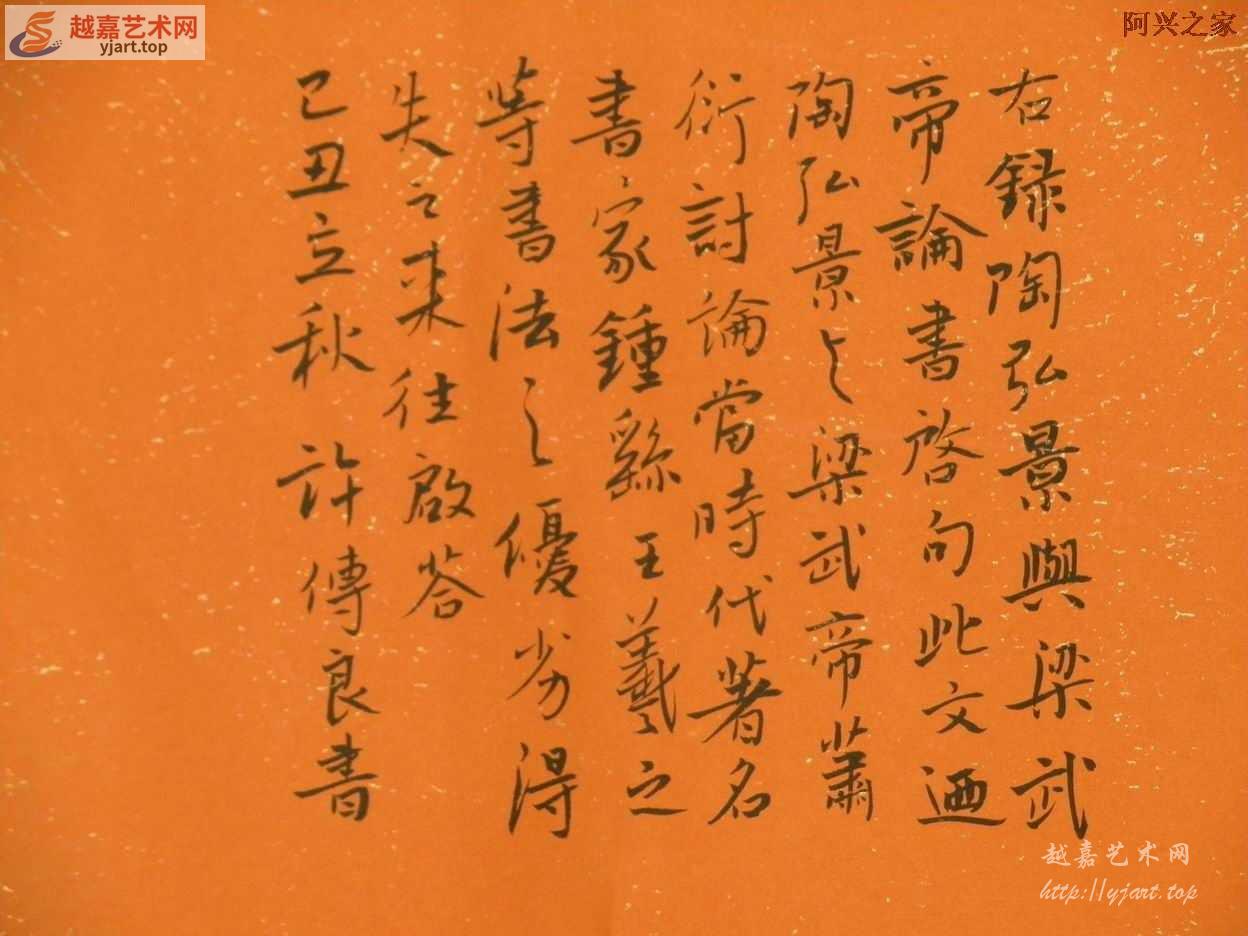 越嘉艺术网
yjart.top
阿兴之家
右録陶弘景與梁武
帝論書啓句此文迺
陶弘景与梁武帝蕭
衍討論當時代著名
書家鍾繇王羲之
等書法之優劣得
失之来往啟荅
己丑立秋 許傳良書
越嘉艺术网
http://yjart.top